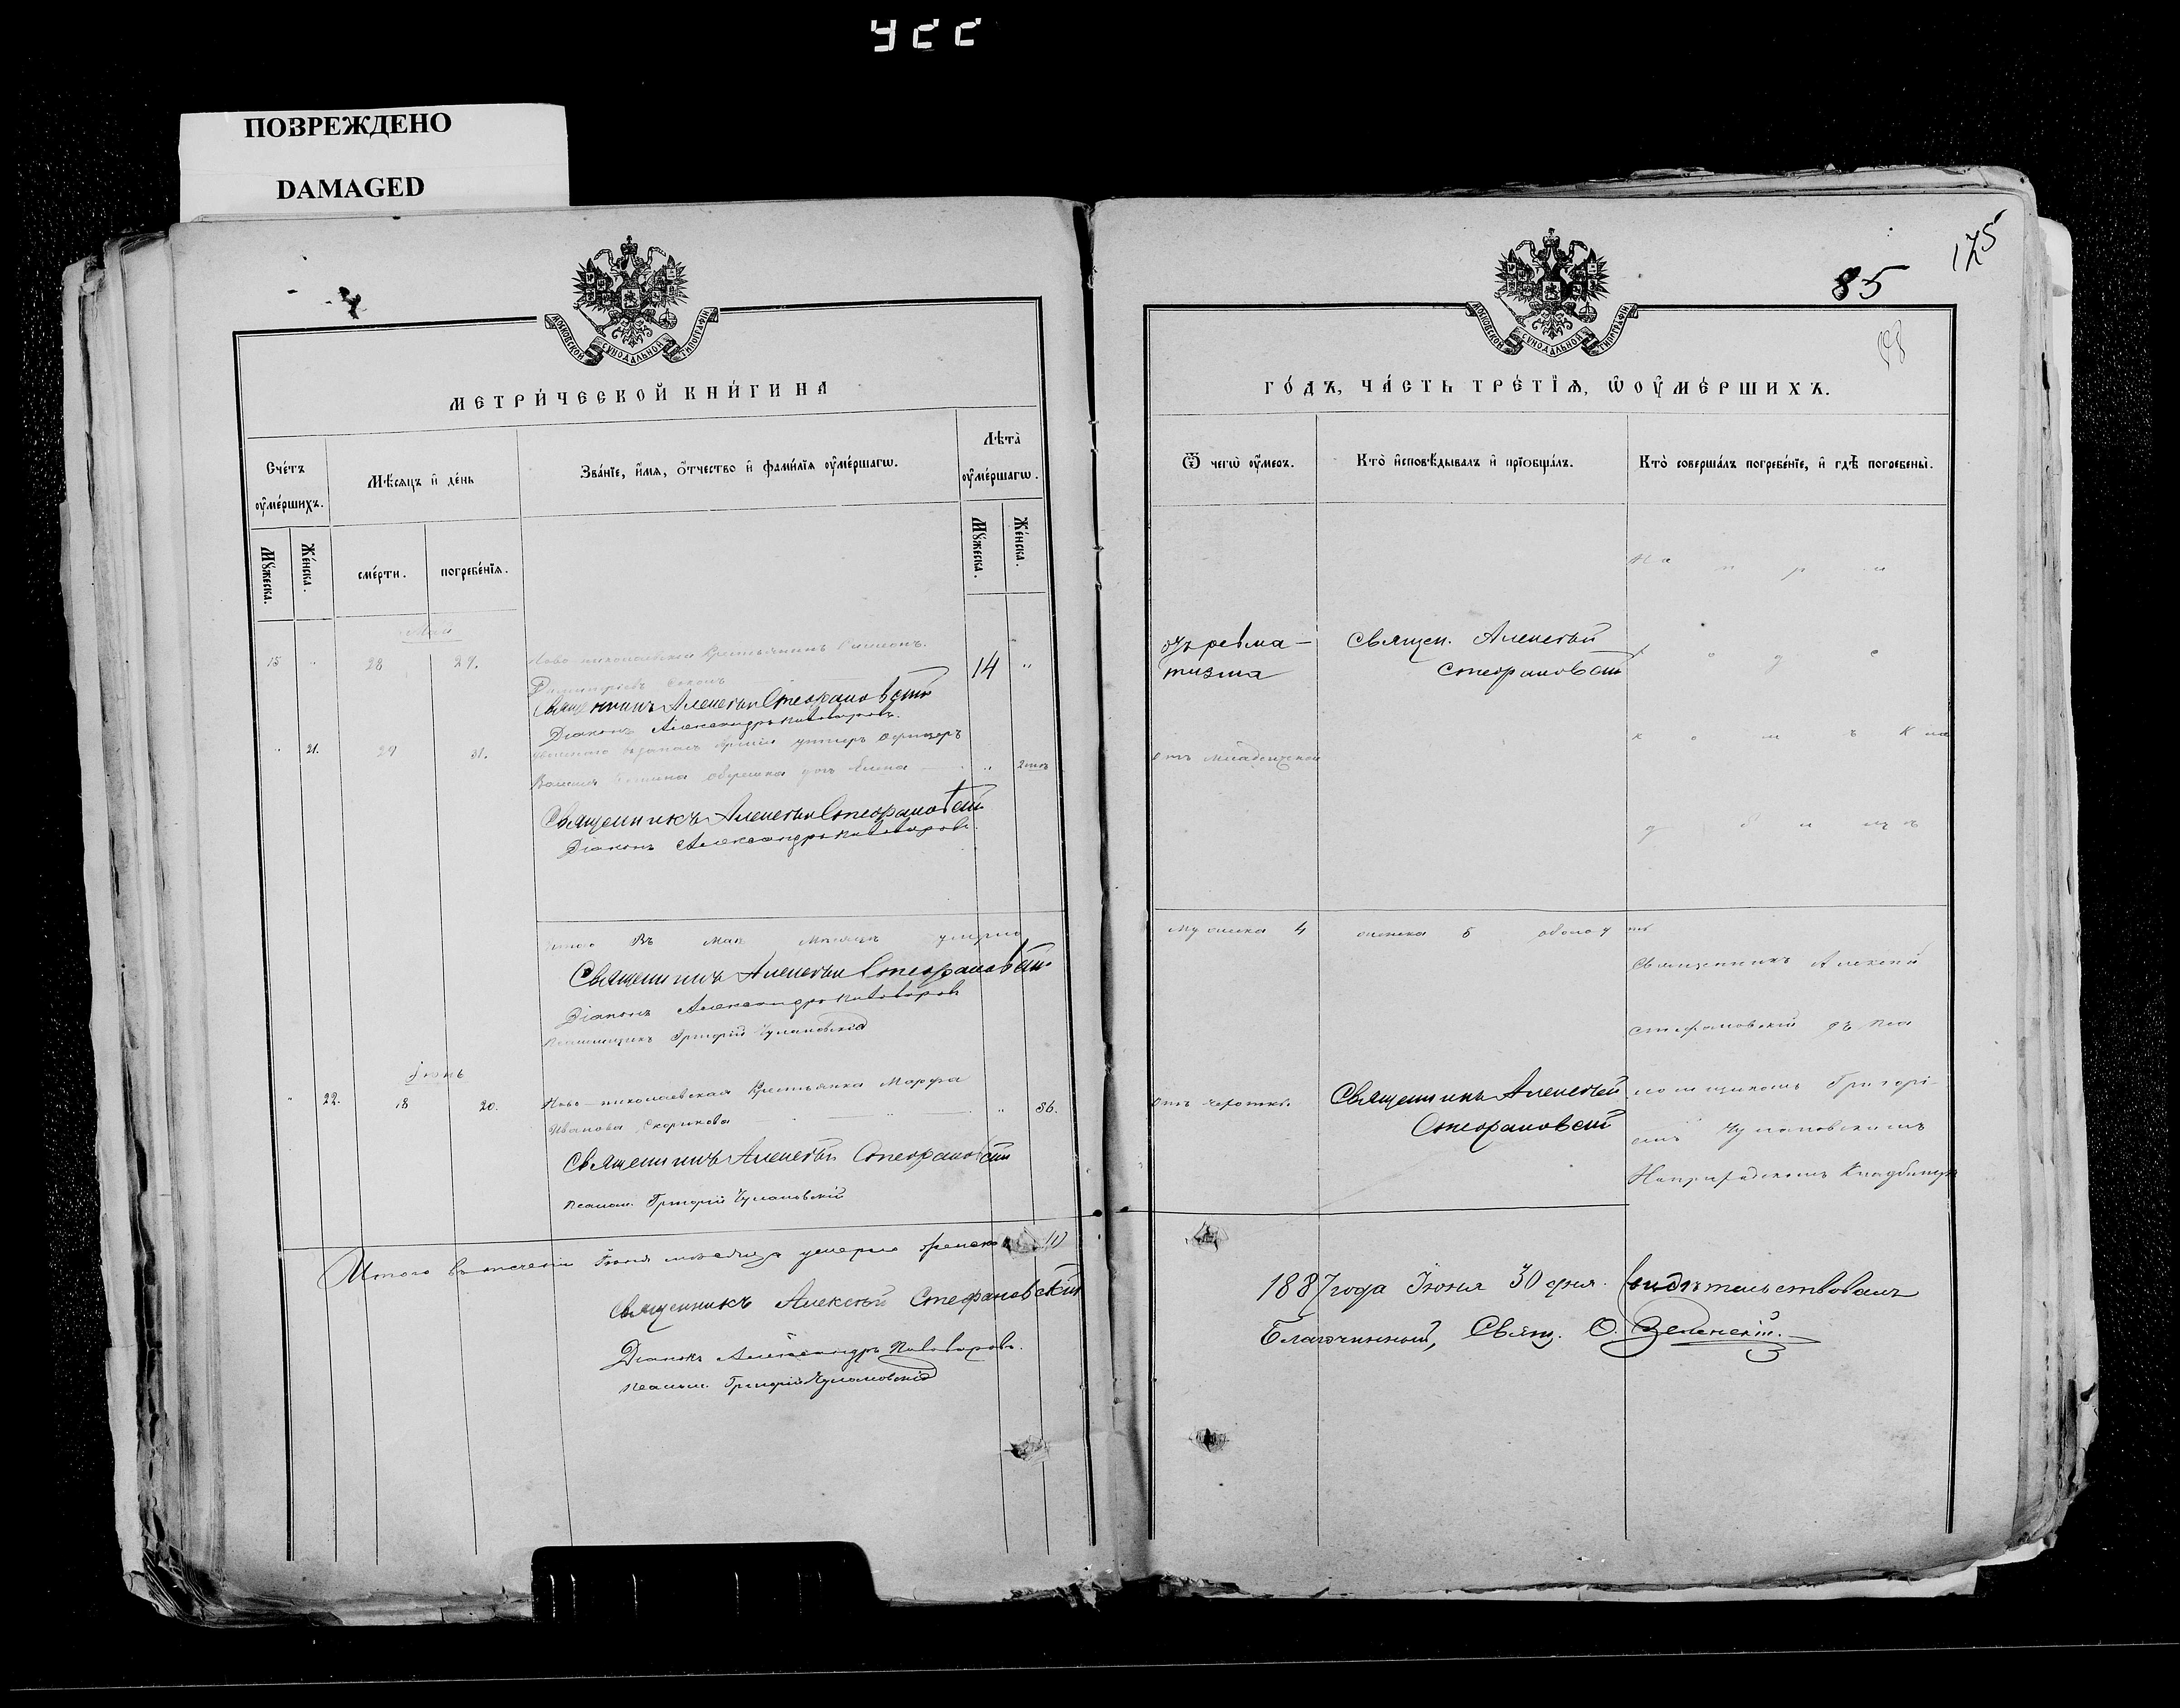 УСС
ПОВРЕЖДЕНО
DAMAGED
МОСКОВСКОЙ СУНОДАЛЬНОЙ ТИПОГРАФІИ
МЕТРИ́ЧЕСКОЙ КНИ́ГИ НА
Сче́тъ оу҆ме́ршихъ.
Мѣ́сяцъ и҆ де́нь
Зва́нїе, и҆́мѧ, о҆́тчество и҆ фами́лїѧ оу҆ме́ршагѡ.
Лѣта̀ оу҆ме́ршагѡ.
Мꙋ́жеска.
Же́нска.
сме́рти.
погребе́нїѧ.
Мꙋ́жеска.
Же́нска.
Май
15 " 28 29. Ново-николаевскій Крестьянинъ Симеонъ 14 "
Димитріевъ
Священникъ Алексѣй Стефановскій
Діаконъ Александръ Пивоваровъ.
" 21. 29 31. унтеръ офицеръ
" 2
Священникъ Алексѣй Стефановскій
Діаконъ Александръ Пивоваровъ.
Итого Въ Маѣ Мѣсяцѣ умерло
Священникъ Алексѣй Стефановскій
Діаконъ Александръ Пивоваровъ
Псаломщикъ Григорій Чулановскій
Іюнь
" 22. 18 20. Ново-николаевская Крестьянка Марфа " 86.
Иванова Скорикова
Священникъ Алексѣй Стефановскій
Псалом. Григорій Чулановскій
Итого въ теченіи Іюня мѣсяца умерло женска
Священникъ Алексѣй Стефановскій
Діаконъ Александръ Пивоваровъ.
Псалом. Григорій Чулановскій
85
175
МОСКОВСКОЙ СУНОДАЛЬНОЙ ТИПОГРАФІИ
ГО́ДЪ, ЧА́СТЬ ТРЕ́ТЇѦ, Ѡ҆ ОУ҆МЕ́РШИХЪ.
Ѿ чегѡ̀ оу҆́меръ.
Кто̀ и҆сповѣ́дывалъ и҆ прїобща́лъ.
Кто̀ соверша́лъ погребе́нїе, и҆ гдѣ̀ погребены̀.
На при
Отъ ревма-
тизма
Священ. Алексѣй
Стефановскій
х о д с
к о м ъ Кла
Отъ младенческой
д б и щ ѣ
Мужеска 4 женска 5 обоего
Священникъ Алексѣй
Стефановскій съ Пса
ломщикомъ Григорі-
емъ Чулановскимъ
На приходскомъ Кладбищѣ
Священникъ Алексѣй
Стефановскій
1887 года Іюня 30 дня. Свидѣтельствовалъ
Благочинный, Свящ. Ѳ. Зеленскій.